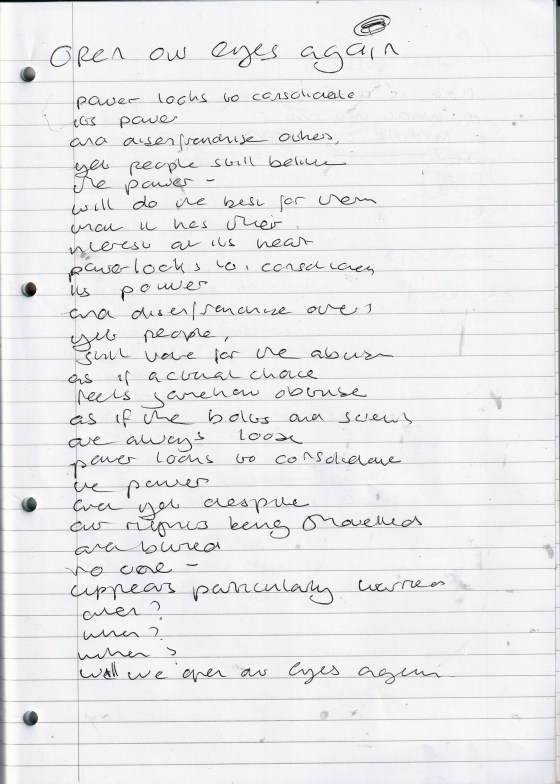 open our eyes again
power looks to consolidate
its power
and disenfranchise others,
yet people still believe
the power -
will do the best for them
that it has their
interest at its heart
power looks to consolidate
its power
and disenfranchise others
yet people,
still vote for the abuse
as if actual choice
feels somehow obtuse
as if the bolts and screws
are always loose
power looks to consolidate
the power
and yet despite
our rights being shovelled
and buried
no one -
appears particularly worried
when?
when?
when?
will we open our eyes again